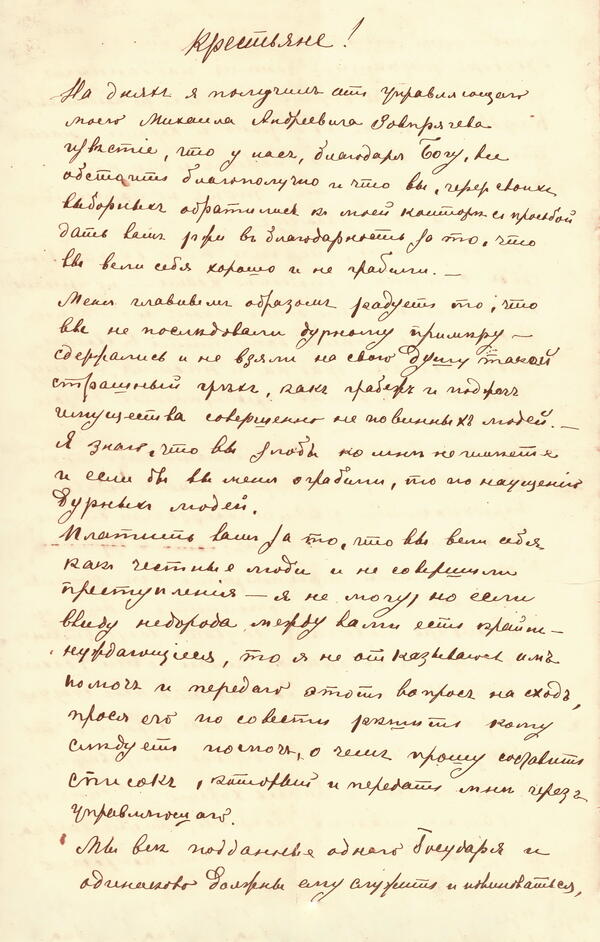 Крестьяне!
На дняхъ я получилъ отъ управляющаго
моего Михаила Андреевича Зовпрягева
извѣстіе, что у насъ, благодаря Богу, все
обстоитъ благополучно и что вы, через своихъ
выборныхъ обратились къ моей конторѣ съ просьбой
дать вамъ ржи въ благодарность за то, что
вы вели себя хорошо и не грабили. —
Меня главнымъ образомъ радуетъ то, что
вы не послѣдовали дурному примѣру —
сдержались и не взяли на свою душу такой
страшный грѣхъ, какъ грабежъ и поджогъ
имущества совершенно не повинныхъ людей. —
Я знаю, что вы злобы ко мнѣ не питаете
и если бы вы меня ограбили, то по наущенію
дурныхъ людей.
Платить вамъ за то, что вы вели себя
какъ честные люди и не совершили
преступленія — я не могу, но если
ввиду недорода между вами есть крайне
нуждающіеся, то я не отказываюсь имъ
помочь и передаю этотъ вопросъ на сходъ,
прося его по совѣсти рѣшить кому
слѣдуетъ помочь, о чемъ прошу составить
списокъ, который и передать мнѣ черезъ
управляющаго.
Мы всѣ подданные одного Государя и
одинаково должны ему служить и повиноваться,